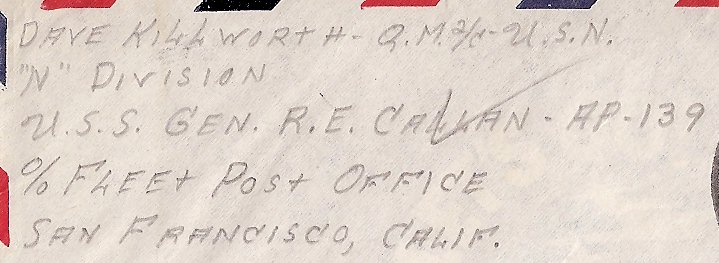 DAVE KILLWORTH - Q.M. 2/c - U.S.N.
"N" DIVISION
U.S.S. GEN. R.E. CALLAN - AP-139
c/o FLEET POST OFFICE
SAN FRANCISCO, CALIF.